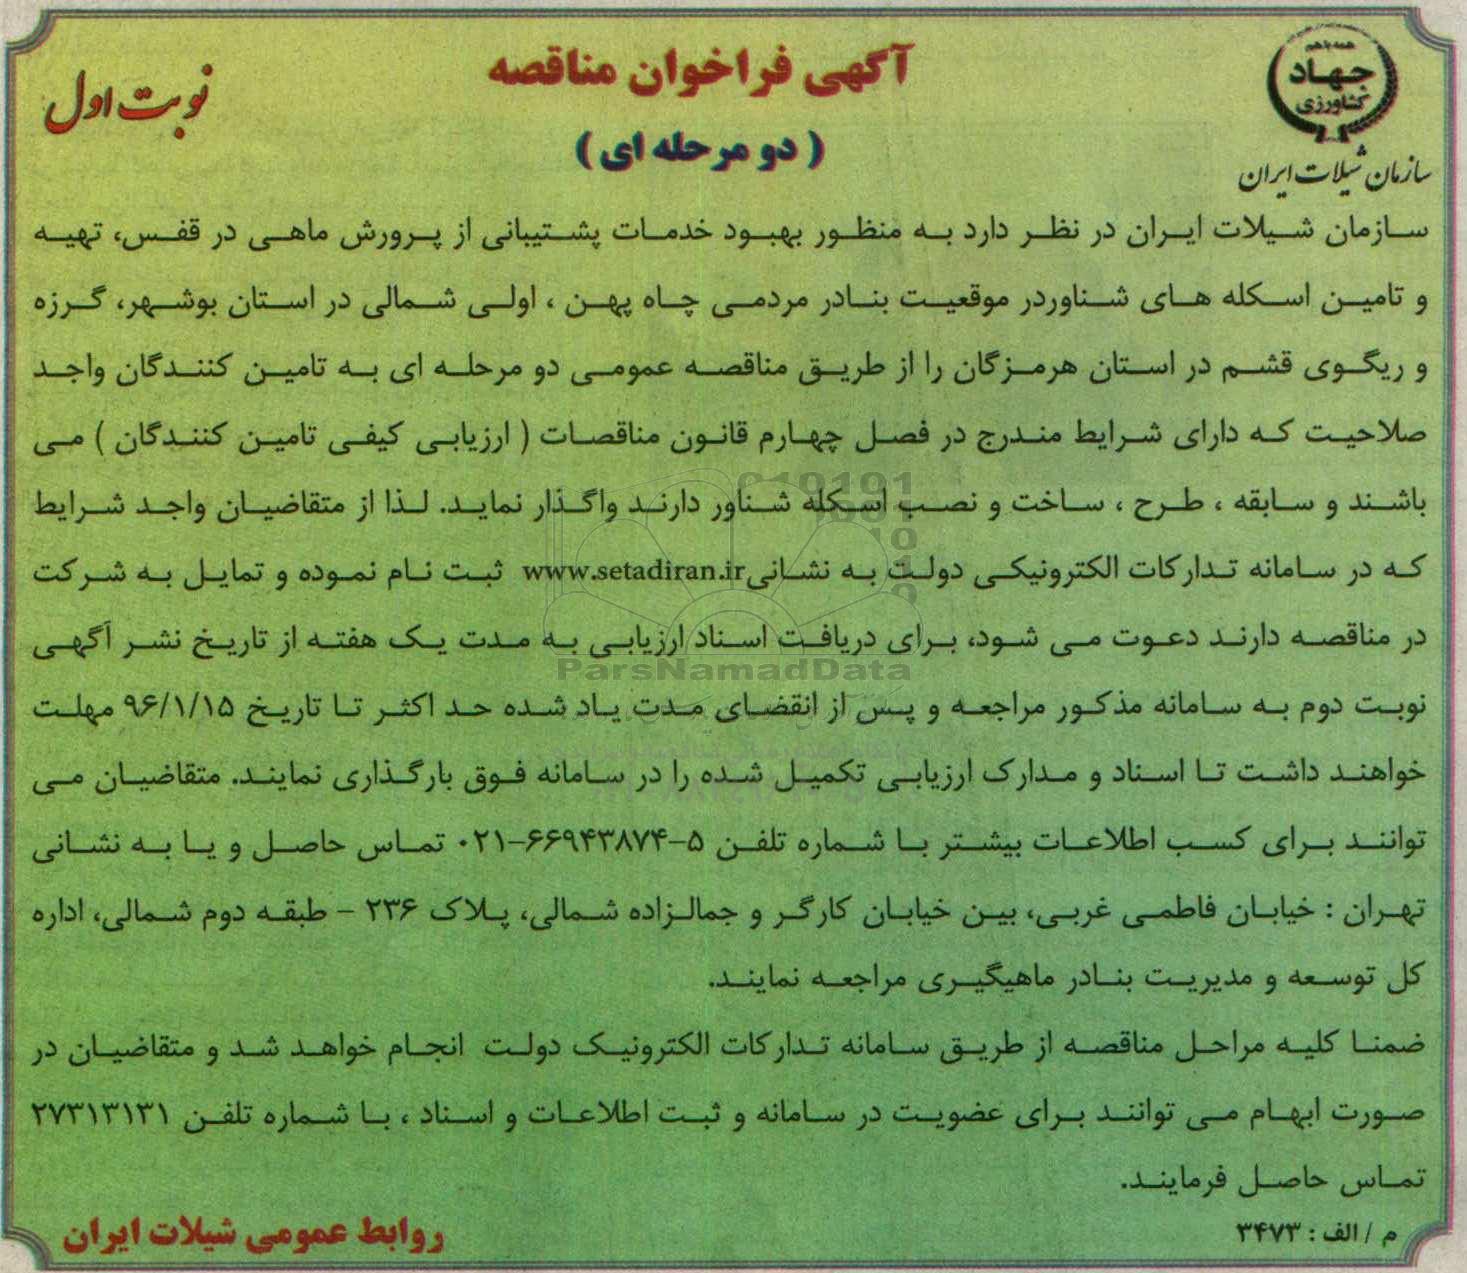 همه با هم
جهاد
کشاورزی
سازمان شیلات ایران
آگهی فراخوان مناقصه
( دو مرحله ای )
نوبت اول
سازمان شیلات ایران در نظر دارد به منظور بهبود خدمات پشتیبانی از پرورش ماهی در قفس، تهیه
و تامین اسکله های شناوردر موقعیت بنادر مردمی چاه پهن ، اولی شمالی در استان بوشهر، گرزه
و ریگوی قشم در استان هرمزگان را از طریق مناقصه عمومی دو مرحله ای به تامین کنندگان واجد
صلاحیت که دارای شرایط مندرج در فصل چهارم قانون مناقصات ( ارزیابی کیفی تامین کنندگان ) می
باشند و سابقه ، طرح ، ساخت و نصب اسکله شناور دارند واگذار نماید. لذا از متقاضیان واجد شرایط
که در سامانه تدارکات الکترونیکی دولت به نشانی www.setadiran.ir ثبت نام نموده و تمایل به شرکت
در مناقصه دارند دعوت می شود، برای دریافت اسناد ارزیابی به مدت یک هفته از تاریخ نشر آگهی
ParsNamadData
نوبت دوم به سامانه مذکور مراجعه و پس از انقضای مدت یاد شده حد اکثر تا تاریخ ۹۶/۱/۱۵ مهلت
خواهند داشت تا اسناد و مدارک ارزیابی تکمیل شده را در سامانه فوق بارگذاری نمایند. متقاضیان می
توانند برای کسب اطلاعات بیشتر با شماره تلفن ۵-۶۶۹۴۳۸۷۴-۰۲۱ تماس حاصل و یا به نشانی
تهران : خیابان فاطمی غربی، بین خیابان کارگر و جمالزاده شمالی، پلاک ۲۳۶ - طبقه دوم شمالی، اداره
کل توسعه و مدیریت بنادر ماهیگیری مراجعه نمایند.
ضمنا کلیه مراحل مناقصه از طریق سامانه تدارکات الکترونیک دولت انجام خواهد شد و متقاضیان در
صورت ابهام می توانند برای عضویت در سامانه و ثبت اطلاعات و اسناد ، با شماره تلفن ۲۷۳۱۳۱۳۱
تماس حاصل فرمایند.
م / الف : ۳۴۷۳
روابط عمومی شیلات ایران